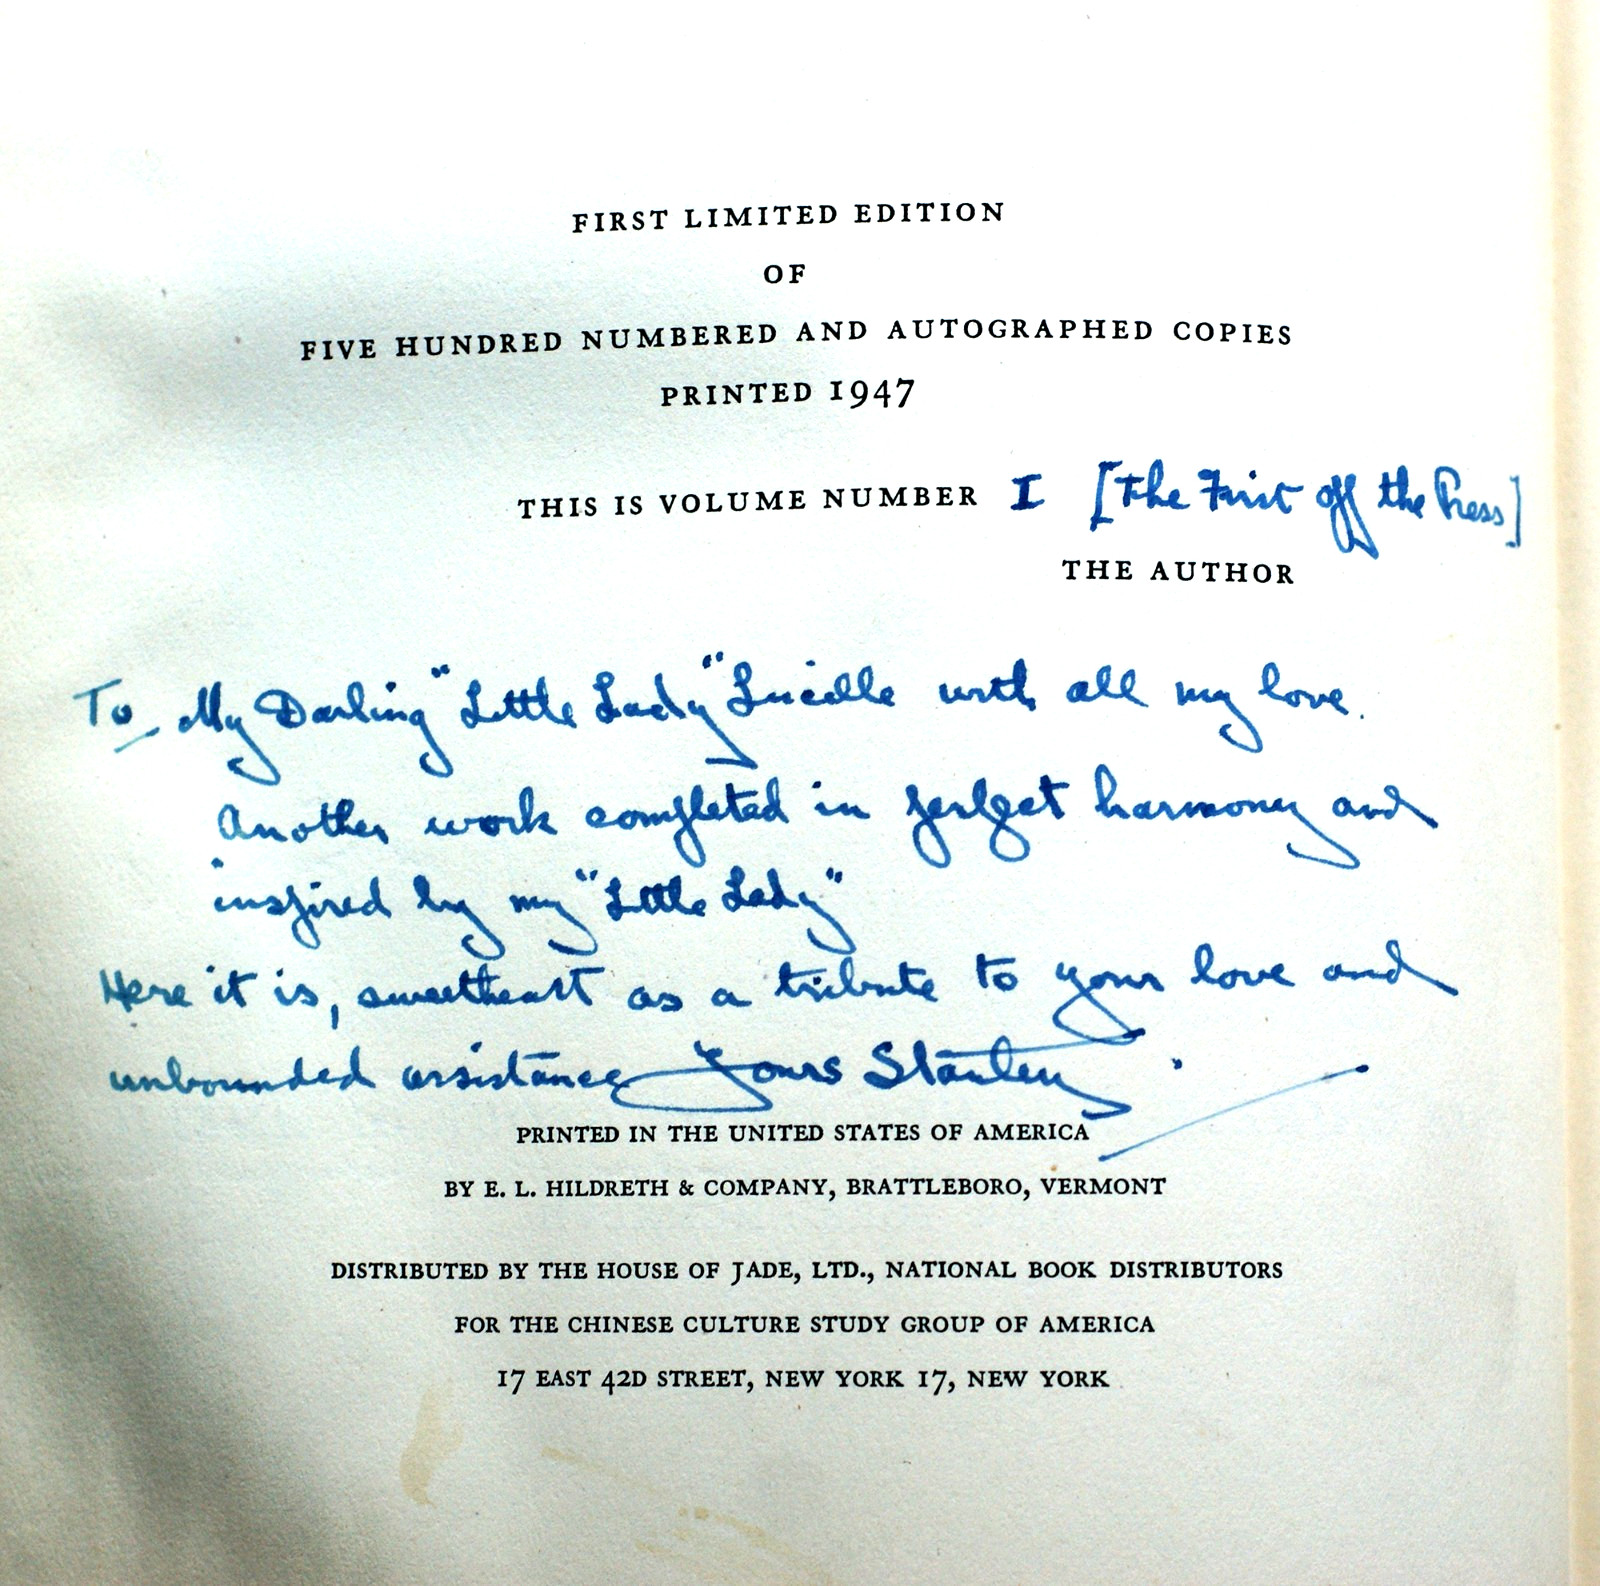 FIRST LIMITED EDITION
OF
FIVE HUNDRED NUMBERED AND AUTOGRAPHED COPIES
PRINTED 1947
THIS IS VOLUME NUMBER I [The First off the Press]
THE AUTHOR
To My Darling "Little Lady" Lucille with all my love.
Another work completed in perfect harmony and
inspired by my "Little Lady"
Here it is, sweetheart as a tribute to your love and
unbounded assistance Yours Stanley
PRINTED IN THE UNITED STATES OF AMERICA
BY E. L. HILDRETH & COMPANY, BRATTLEBORO, VERMONT
DISTRIBUTED BY THE HOUSE OF JADE, LTD., NATIONAL BOOK DISTRIBUTORS
FOR THE CHINESE CULTURE STUDY GROUP OF AMERICA
17 EAST 42D STREET, NEW YORK 17, NEW YORK